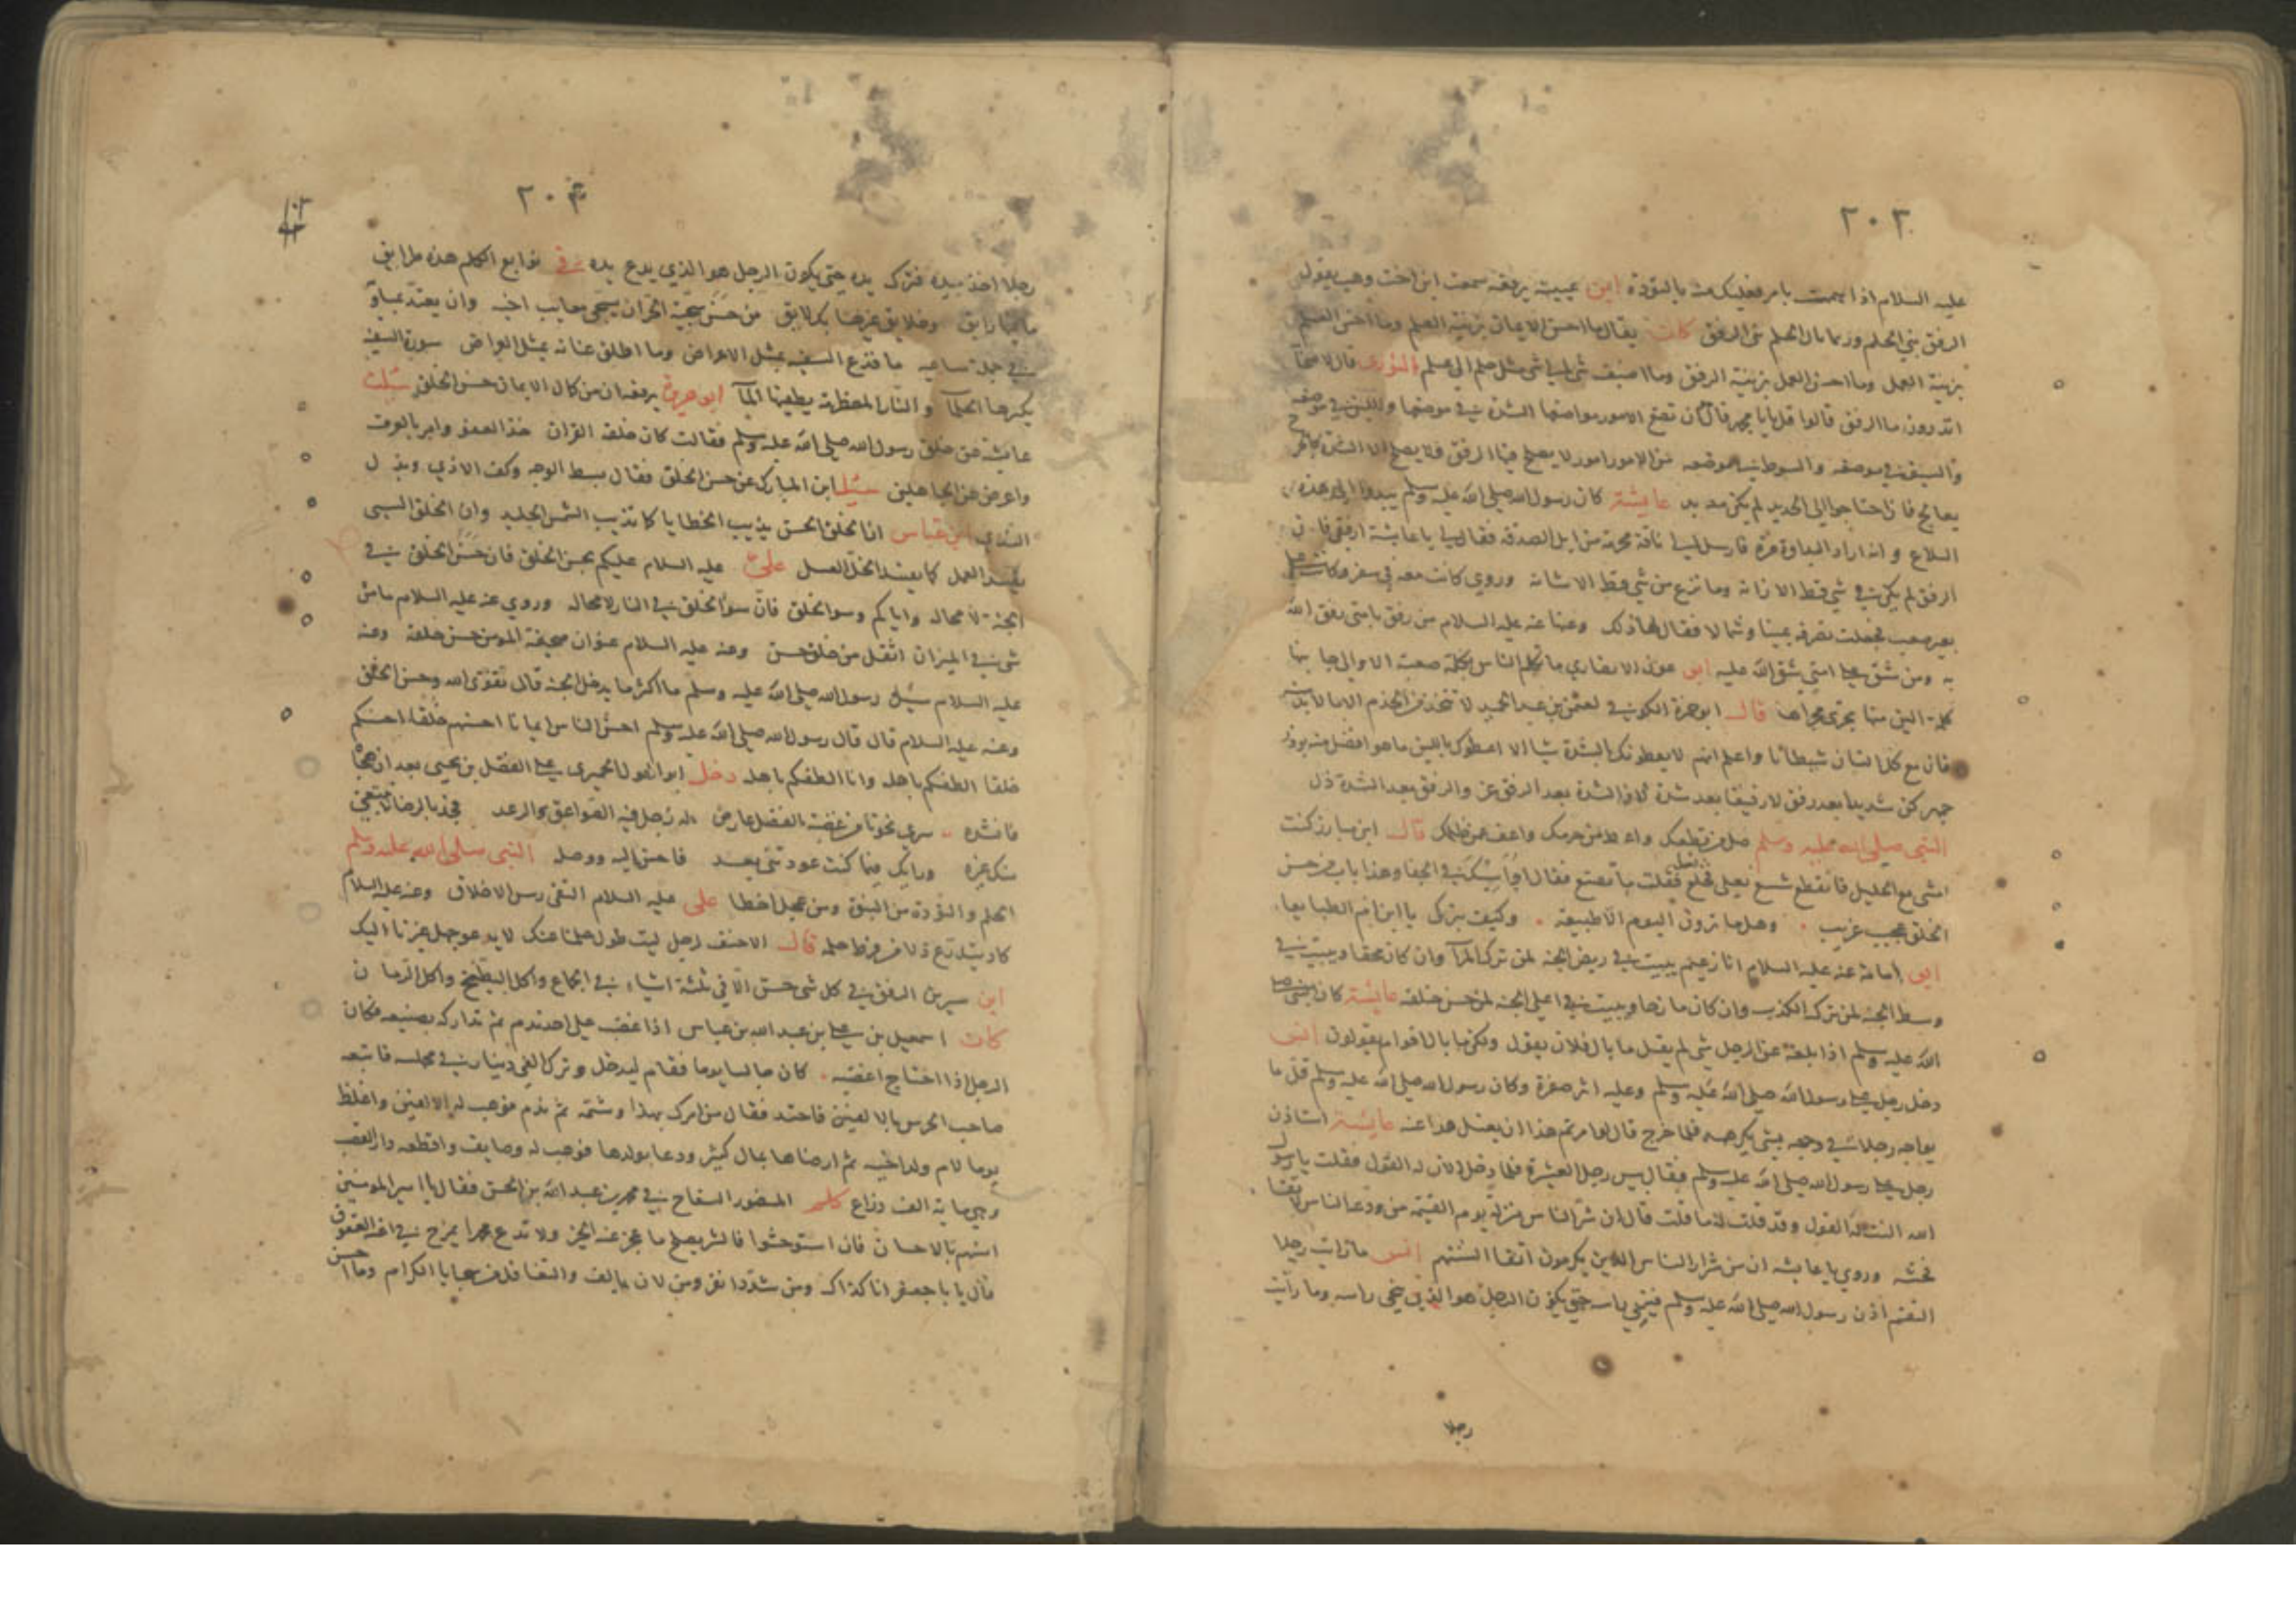 ٢٠٣
عليه السلام اذا هممت بامر فعليك فيه بالتؤدة ابن عيينة يرفعه سمعت ابن اخت وهب يقول
الرفق بني الحلم وربما بال الحلم بني الرفق كانت يقال ما احسن الايمان بزينة العلم وما احسن العلم
بزينة العمل وما احسن العمل بزينة الرفق وما اضيف شي الى شي مثل حلم الى علم الثوري قال لاصحابه
اتدرون ما الرفق قالوا قل يا با محمد قال ان تضع الامور مواضعها الشدة في موضعها واللين في موضعه
والسيف في موضعه والسوط في موضعه من الامور امور لا يصلح فيها الرفق ولا يصلح الا الشدة كالجرح
يعالج فاذا احتاج الى الحديد لم يكن منه بد عايشة كان رسول الله صلى الله عليه وسلم يبدوا الى هذه
التلاع وانه اراد البداوة مرة فارسل الي ناقة محرمة من ابل الصدقة فقال لي يا عايشة ارفقي فان
الرفق لم يكن في شي قط الا زانه وما نزع من شي قط الا شانه وروي كانت معه في سفر وكانت على
بعير صعب فجعلت تصرفه يمينا وشمالا فقال لها ذلك وعنها عنه عليه السلام من رفق بامتي رفق الله
به ومن شق على امتي شق الله عليه ابو عون الانصاري ما تكلم الناس بكلمة صعبة الا والى جانبها
كلمة الين منها يجري مجراها قال ابو حمزة الكوفي لعثمن بن عبد الحميد لا تتخذ من الخدم الا ما لا بد منه
فان مع كل انسان شيطانا واعلم انهم لا يعطونك بالشدة شيا الا اعطوك باللين ما هو افضل منه بوذر
جمهر كن شديدا بعد رفق لا رفيقا بعد شدة لان الشدة بعد الرفق عز والرفق بعد الشدة ذل
النبي صلى الله عليه وسلم صل من قطعك واعط من حرمك واعف عمن ظلمك قال ابن مبارز كنت
امشي مع الخليل فانقطع شسع نعلي فخلع نعله فقلت ما تصنع فقال اواسيك في الجفا وهذا باب من حسن
الخلق عجيب غريب وهل ما ترون اليوم الا طبيعة وكيف بترك يا ابن ام الطبايعا
ابو امامة عنه عليه السلام انا زعيم ببيت في ربض الجنة لمن ترك المرآ وان كان محقا وببيت في
وسط الجنة لمن ترك الكذب وان كان مازحا وببيت في اعلى الجنة لمن حسن خلقه عايشة كان النبي صلى
الله عليه وسلم اذا بلغه عن الرجل شي لم يقل ما بال فلان يقول ولكن ما بال اقوام يقولون انس
دخل رجل على رسول الله صلى الله عليه وسلم وعليه اثر صفرة وكان رسول الله صلى الله عليه وسلم قل ما
يواجه رجلا في وجهه بشي يكرهه فلما خرج قال لو امرتم هذا ان يغسل هذا عنه عايشة استاذن
رجل على رسول الله صلى الله عليه وسلم فقال بيس رجل العشيرة فلما دخل الان له القول فقلت يا رسول
الله النت له القول وقد قلت له ما قلت قال ان شر الناس منزلة يوم القيمة من ودعه الناس اتقا
فحشه وروي يا عايشه ان من شرار الناس الذين يكرمون اتقا السنتهم انس ما رايت رجلا
التقم اذن رسول الله صلى الله عليه وسلم فينحي راسه حتى يكون الرجل هو الذي ينحي راسه وما رايت
رجلا
٢٠٤
رجلا اخذ بيده فترك يده حتى يكون الرجل هو الذي يدع يده في نوابغ الكلم هذه طرايق
ما فيها رايق وخلايق غيرها بك لايق من حسن سجية الحر ان يسجى معايب اخيه وان يعتد
في جملة مساعيه ما قدع السفيه بمثل الاعراض وما اطلق عنانه بمثل العراض سورة السفيه
يكسرها الحلمآ والنار المضطرمة يطفيها المآ ابو هريرة يرفعه ان من كمال الايمان حسن الخلق سئلت
عايشة عن خلق رسول الله صلى الله عليه وسلم فقالت كان خلقه القران خذ العفو وامر بالعرف
واعرض عن الجاهلين سئل ابن المبارك عن حسن الخلق فقال بسط الوجه وكف الاذي وبذل
الندي ابن عباس ان الخلق الحسن يذيب الخطايا كما تذيب الشمس الجليد وان الخلق السيي
يفسد العمل كما يفسد الخل العسل علي عليه السلام عليكم بحسن الخلق فان حسن الخلق في
الجنة لا محاله واياكم وسو الخلق فان سوا الخلق في النار لا محاله وروي عنه عليه السلام ما من
شي في الميزان اثقل من خلق حسن وعنه عليه السلام عنوان صحيفة المومن حسن خلقه وعنه
عليه السلام سئل رسول الله صلى الله عليه وسلم ما اكثر ما يدخل الجنة قال تقوى الله وحسن الخلق
وعنه عليه السلام قال قال رسول الله صلى الله عليه وسلم احسن الناس ايمانا احسنهم خلقا احسنكم
خلقا الطفكم باهله وانا الطفكم باهله دخل ابو الهول الحميري على الفضل بن يحيى بعد ان هجاه
فانشده سري نحونا من غضبة الفضل عارض له زجل فيه الصواعق والرعد فجد بالرضا لا ابتغي
منك غيره ورايك فيما كنت عودتني بعد فاحسن اليه ووصله النبي صلى الله عليه وسلم
الحلم والتؤدة من النبوة ومن عجل اخطا علي عليه السلام التقى ريس الاخلاق وعنه عليه السلام
كاد يتدرع ذلا من فرط حلمه قال الاحنف لرجل ليت طول حلمنا عنك لا يدعو جهل غيرنا اليك
ابن سيرين الرفق في كل شي حسن الا في ثلثة اشياء في الجماع واكل البطيخ واكل الرمان
كان اسمعيل بن علي بن عبد الله بن عباس اذا غضب على احد ندم ثم تداركه بصنيعه فكان
الرجل اذا احتاج اغضبه كان جالسا يوما فقام ليدخل وترك الفي دينار في مجلسه فاتبعه
صاحب الحرس بالالفين فاحتد فقال من امرك بهذا وشتمه ثم ندم فوهب له الالفين واغلظ
يوما لام ولد اخيه ثم ارضاها بمال كثير ودعا بولدها فوهب له وصايف واقطعه دار القصب
وهي ماية الف ذراع كلم المنصور السفاح في محمد بن عبد الله بن الحسن فقال يا امير المومنين
انسهم بالاحسان فان استوحشوا فالشر يصلح ما عجز عنه الخير ولا تدع محمدا يمرح في اعنة العقوق
فقال يا با جعفر انا كذاك ومن شدد انفر ومن لان تالف والتغافل من سجايا الكرام وما احسن